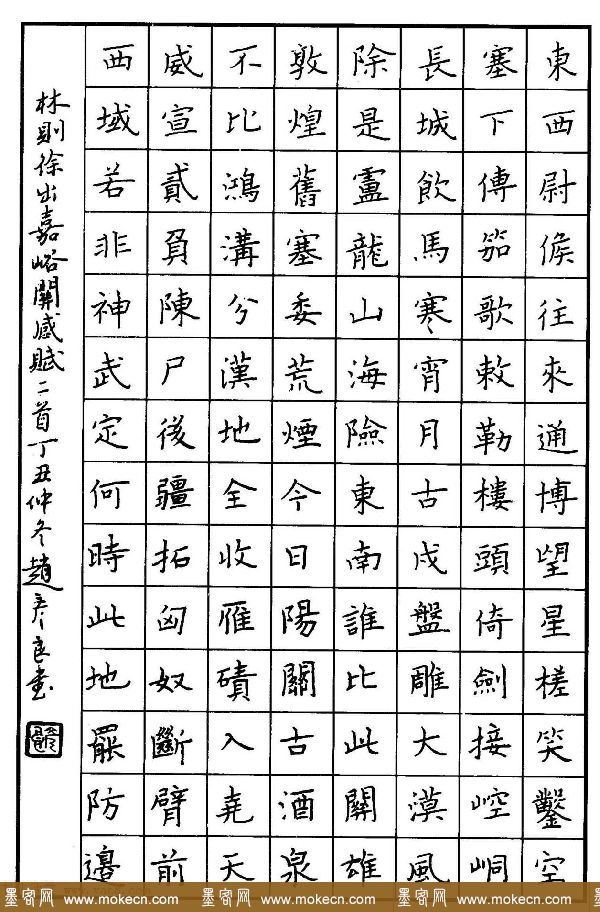 東西尉候往來通博望星槎笑鑿空
塞下傳笳歌敕勒樓頭倚劍接崆峒
長城飲馬寒宵月古戍盤雕大漠風
除是盧龍山海險東南誰比此關雄
敦煌舊塞委荒煙今日陽關古酒泉
不比鴻溝分漢地全收雁磧入堯天
威宣貳負陳尸後疆拓匈奴斷臂前
西域若非神武定何時此地罷防邊
林則徐出嘉峪關感賦二首丁丑仲冬趙彥良書
墨客网 www.mokecn.com 墨客网 www.mokecn.com 墨客网 www.mokecn.com